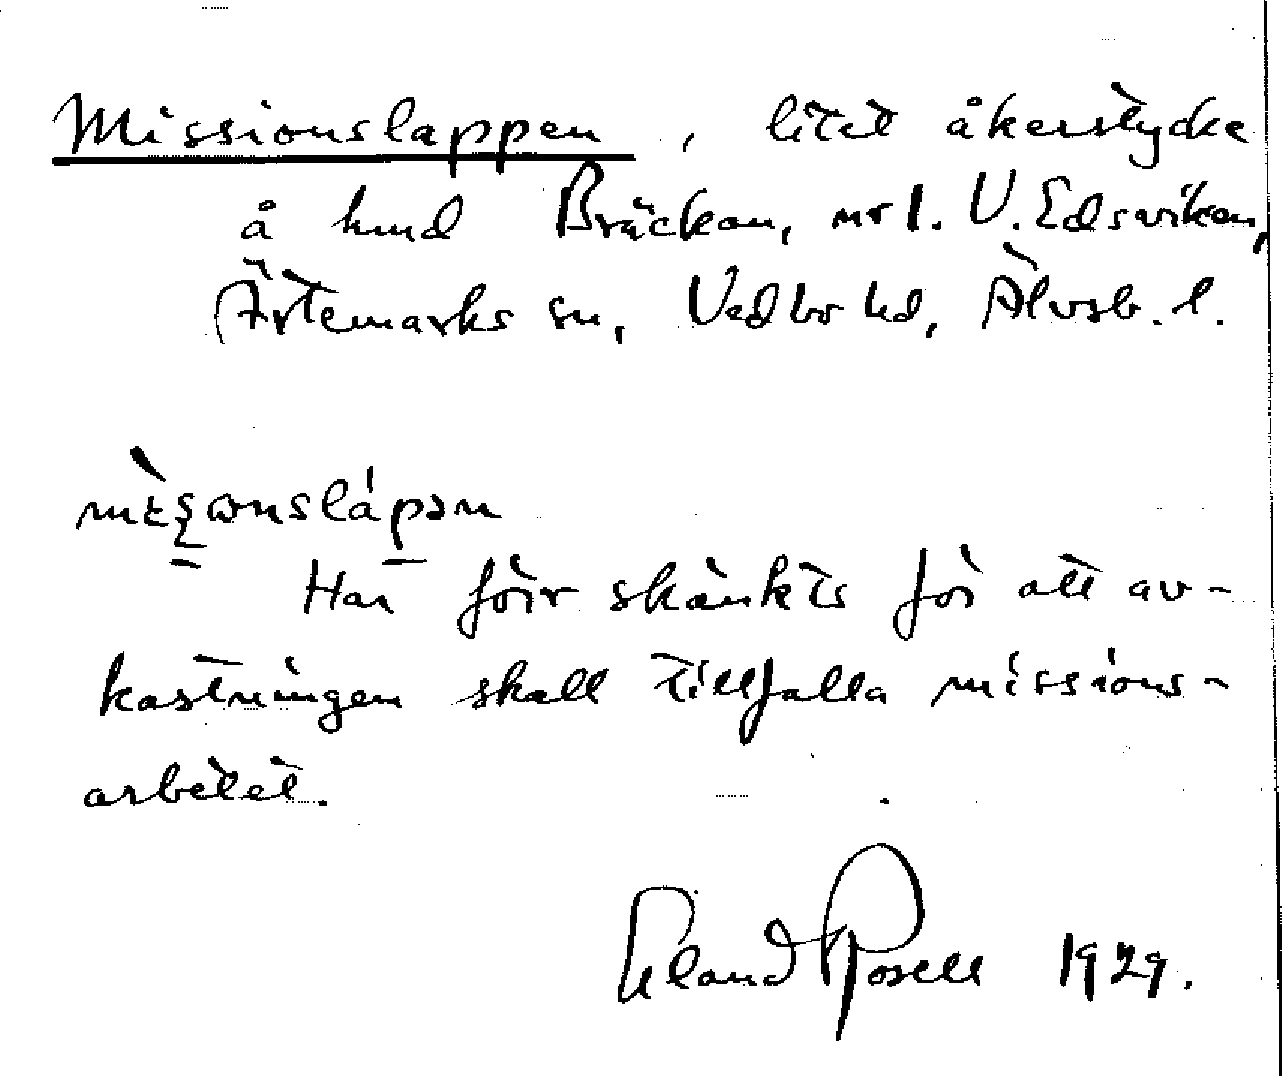 Missionslappen, litet åkerstycke
å hmd Bräckan, nr 1. V. Edsviken,
Ärtemarks sn, Vedbo hd, Älvsb. l.
Har förr skänkts för att av-
kastningen skall tillfalla missions-
arbetet.
Erland Rosell 1929.